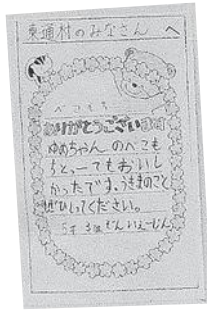 東通村のみなさん へ
べこもち
ありがとうございます
ゆめちゃん のべこも
ちと、ーてもおいし
かったです、うきまのごぐ
ぜひしてください。
5才